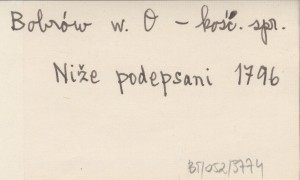 Bobrów w. O – kość. spr.
Niże podepsani 1796
BT/052/3774